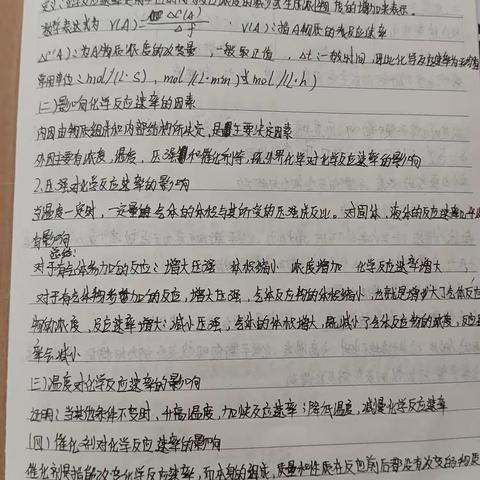 数学表达式为 V(A)=ΔC(A)/Δt , V(A):指A物质的反应速率
ΔC(A):为A物质浓度的改变量,一般取正值,Δt:一段时间,因此化学反应速率为正值
常用单位:mol/(L·s),mol/(L·min)或mol/(L·h)
(二)影响化学反应速率的因素
内因由物质组成和内部结构所决定,是主要决定因素
外因主要有浓度,温度,压强和催化剂等,既外界化学对化学反应速率的影响
2.压强对化学反应速率的影响
当温度一定时,一定量气体的体积与其所受的压强成反比。对固体,液体的反应速率几乎没
有影响
总结:
对于有气体参加的反应:增大压强 体积缩小 浓度增加 化学反应速率增大
对于有气体物参加的反应,增大压强,气体反应物的体积缩小,也就是增大了气体反应
物的浓度,反应速率增大;减小压强,气体的体积增大,既减小了气体反应物的浓度,反应速
率会减小
(三)温度对化学反应速率的影响
说明:当其他条件不变时,升高温度,加快反应速率;降低温度,减慢化学反应速率
(四)催化剂对化学反应速率的影响
催化剂是指能改变化学反应速率,而本身的组成,质量和性质在反应前后都没有改变的物质